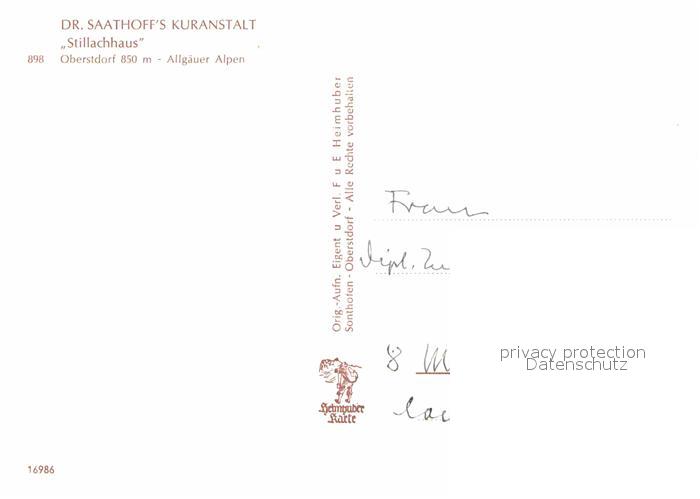 DR. SAATHOFF'S KURANSTALT
„Stillachhaus”
898 Oberstdorf 850 m - Allgäuer Alpen
Orig.-Aufn. Eigent u Verl. F u E Heimhuber
Sonthofen - Oberstdorf - Alle Rechte vorbehalten
Frau
Dipl.
8 M
privacy protection
Datenschutz
Heimhuber
Karte
16986